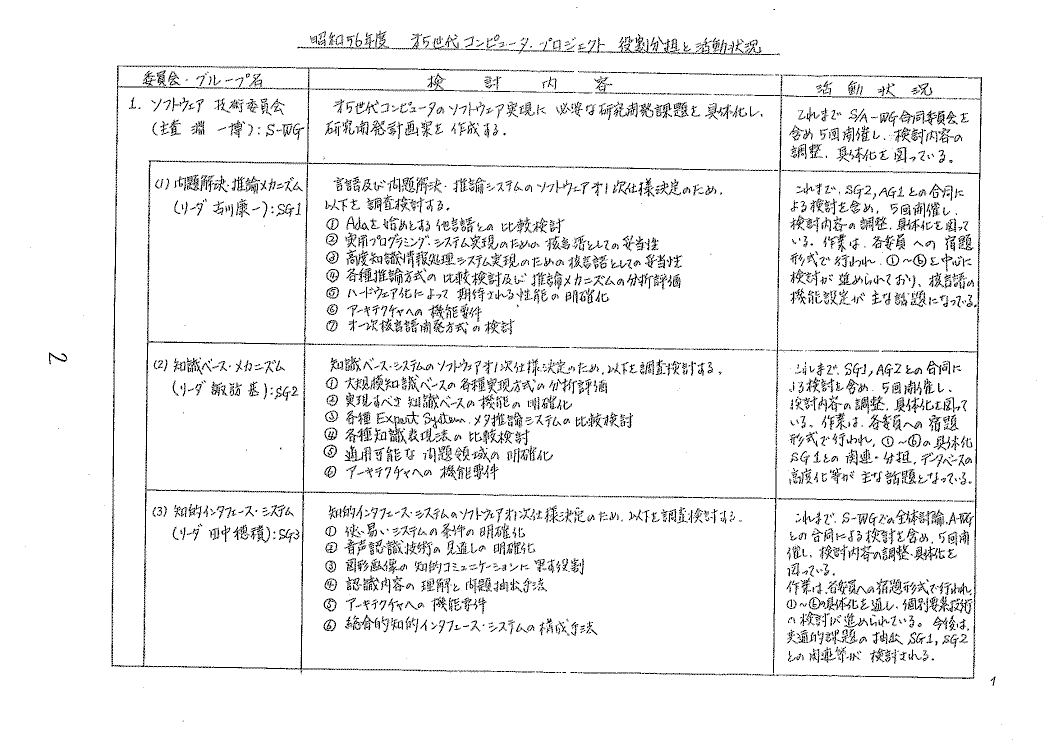 昭和56年度 才5世代コンピュータ・プロジェクト 役割分担と活動状況
委員会・グループ名
検討内容
活動状況
1. ソフトウェア 技術委員会
(主査 淵 一博): S-WG
才5世代コンピュータのソフトウェア実現に 必要な研究開発課題を具体化し、
研究開発計画案を作成する。
これまで S/A-WG合同委員会を
含め5回開催し、検討内容の
調整、具体化を図っている。
(1) 問題解決・推論メカニズム
(リーダ 古川康一): SG1
言語及び問題解決・推論システムのソフトウェアオ1次仕様決定のため、
以下を調査検討する。
① Adaを始めとする他言語との比較検討
② 実用プログラミング・システム実現のための核言語としての妥当性
③ 高度知識情報処理システム実現のための核言語としての妥当性
④ 各種推論方式の比較検討及び推論メカニズムの分析評価
⑤ ハードウェア化によって期待される性能の明確化
⑥ アーキテクチャへの機能要件
⑦ オ一次核言語開発方式の検討
これまで、SG2, AG1との合同に
よる検討を含め、5回開催し、
検討内容の調整、具体化を図って
いる。作業は、各委員への宿題
形式で行われ、①~⑥を中心に
検討が進められており、核言語の
機能設定が主な話題になっている。
(2) 知識ベース・メカニズム
(リーダ 諏訪 基): SG2
知識ベース・システムのソフトウェアオ1次仕様決定のため、以下を調査検討する。
① 大規模知識ベースの各種実現方式の分析評価
② 実現すべき知識ベースの機能の明確化
③ 各種 Expert System、メタ推論システムの比較検討
④ 各種知識表現法の比較検討
⑤ 適用可能な問題領域の明確化
⑥ アーキテクチャへの機能要件
これまで、SG1, AG2との合同に
よる検討を含め、5回開催し、
検討内容の調整、具体化を図って
いる。作業は、各委員への宿題
形式で行われ、①~⑥の具体化
SG1との関連・分担、データベースの
高度化等が主な話題となっている。
(3) 知的インタフェース・システム
(リーダ 田中穂積): SG3
知的インタフェース・システムのソフトウェアオ1次仕様決定のため、以下を調査検討する。
① 使い易いシステムの条件の明確化
② 音声認識技術の見通しの明確化
③ 図形画像の知的コミュニケーションに果す役割
④ 認識内容の理解と問題抽出手法
⑤ アーキテクチャへの機能要件
⑥ 総合的知的インタフェース・システムの構成手法
これまで、S-WGでの全体討論、A-WG
との合同による検討を含め、5回開
催し、検討内容の調整・具体化を
図っている。
作業は、各委員への宿題形式で行われ、
①~⑥の具体化を通し、個別要素技術
の検討が進められている。今後は、
共通的課題の抽出、SG1, SG2
との関連等が検討される。
2
1